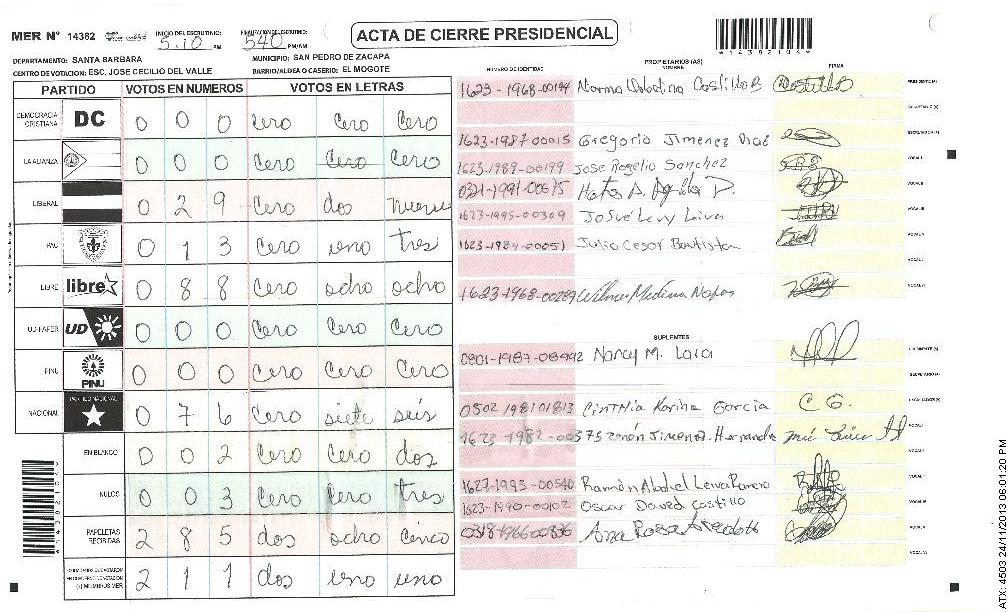 ACTA DE CIERRE PRESIDENCIAL
MER N° 14382
INICIO DEL ESCRUTINIO: 5:10 PM
540 PM/AM
DEPARTAMENTO: SANTA BARBARA
MUNICIPIO: SAN PEDRO DE ZACAPA
CENTRO DE VOTACION: ESC. JOSE CECILIO DEL VALLE
BARRIO/ALDEA O CASERIO: EL MOGOTE
*14382104*
PARTIDO VOTOS EN NUMEROS VOTOS EN LETRAS
DEMOCRACIA CRISTIANA DC 0 0 0 Cero Cero Cero
LA ALIANZA 0 0 0 Cero Cero Cero
LIBERAL 0 2 9 Cero dos nueve
PAC 0 1 3 Cero uno tres
LIBRE libre 0 8 8 Cero ocho ocho
UD-FAPER UD 0 0 0 Cero Cero Cero
PINU PINU 0 0 0 Cero Cero Cero
NACIONAL 0 7 6 Cero siete seis
EN BLANCO 0 0 2 Cero Cero dos
NULOS 0 0 3 Cero Cero tres
PAPELETAS RECIBIDAS 2 8 5 dos ocho cinco
CIUDADANOS QUE VOTARON EN CUADERNO DE VOTACION (+) MIEMBROS MER 2 1 1 dos uno uno
NUMERO DE IDENTIDAD
PROPIETARIOS (AS)
NOMBRE
FIRMA
1623-1968-00194 Norma Castillo B
1623-1987-00015 Gregorio Jimenez Diaz
1623-1989-00199 Jose Rogelio Sanchez
0321-1991-00675
1623-1995-00309 Josue Levy Leiva
1623-1984-00051 Julio Cesar Bautista
1623-1968-00289 Wilmer Medina
SUPLENTES
0801-1987-08992 Nancy M.
0502 1981 01813 Cinthia Karina Garcia C G.
1623-1982-00375 Zenón Jimenez Hernandez
1627-1993-00540 Ramón Leiva
1623-1990-00102 Oscar David Castillo
Ana Rosa
ATX: 4503 24/11/2013 06:01:20 PM